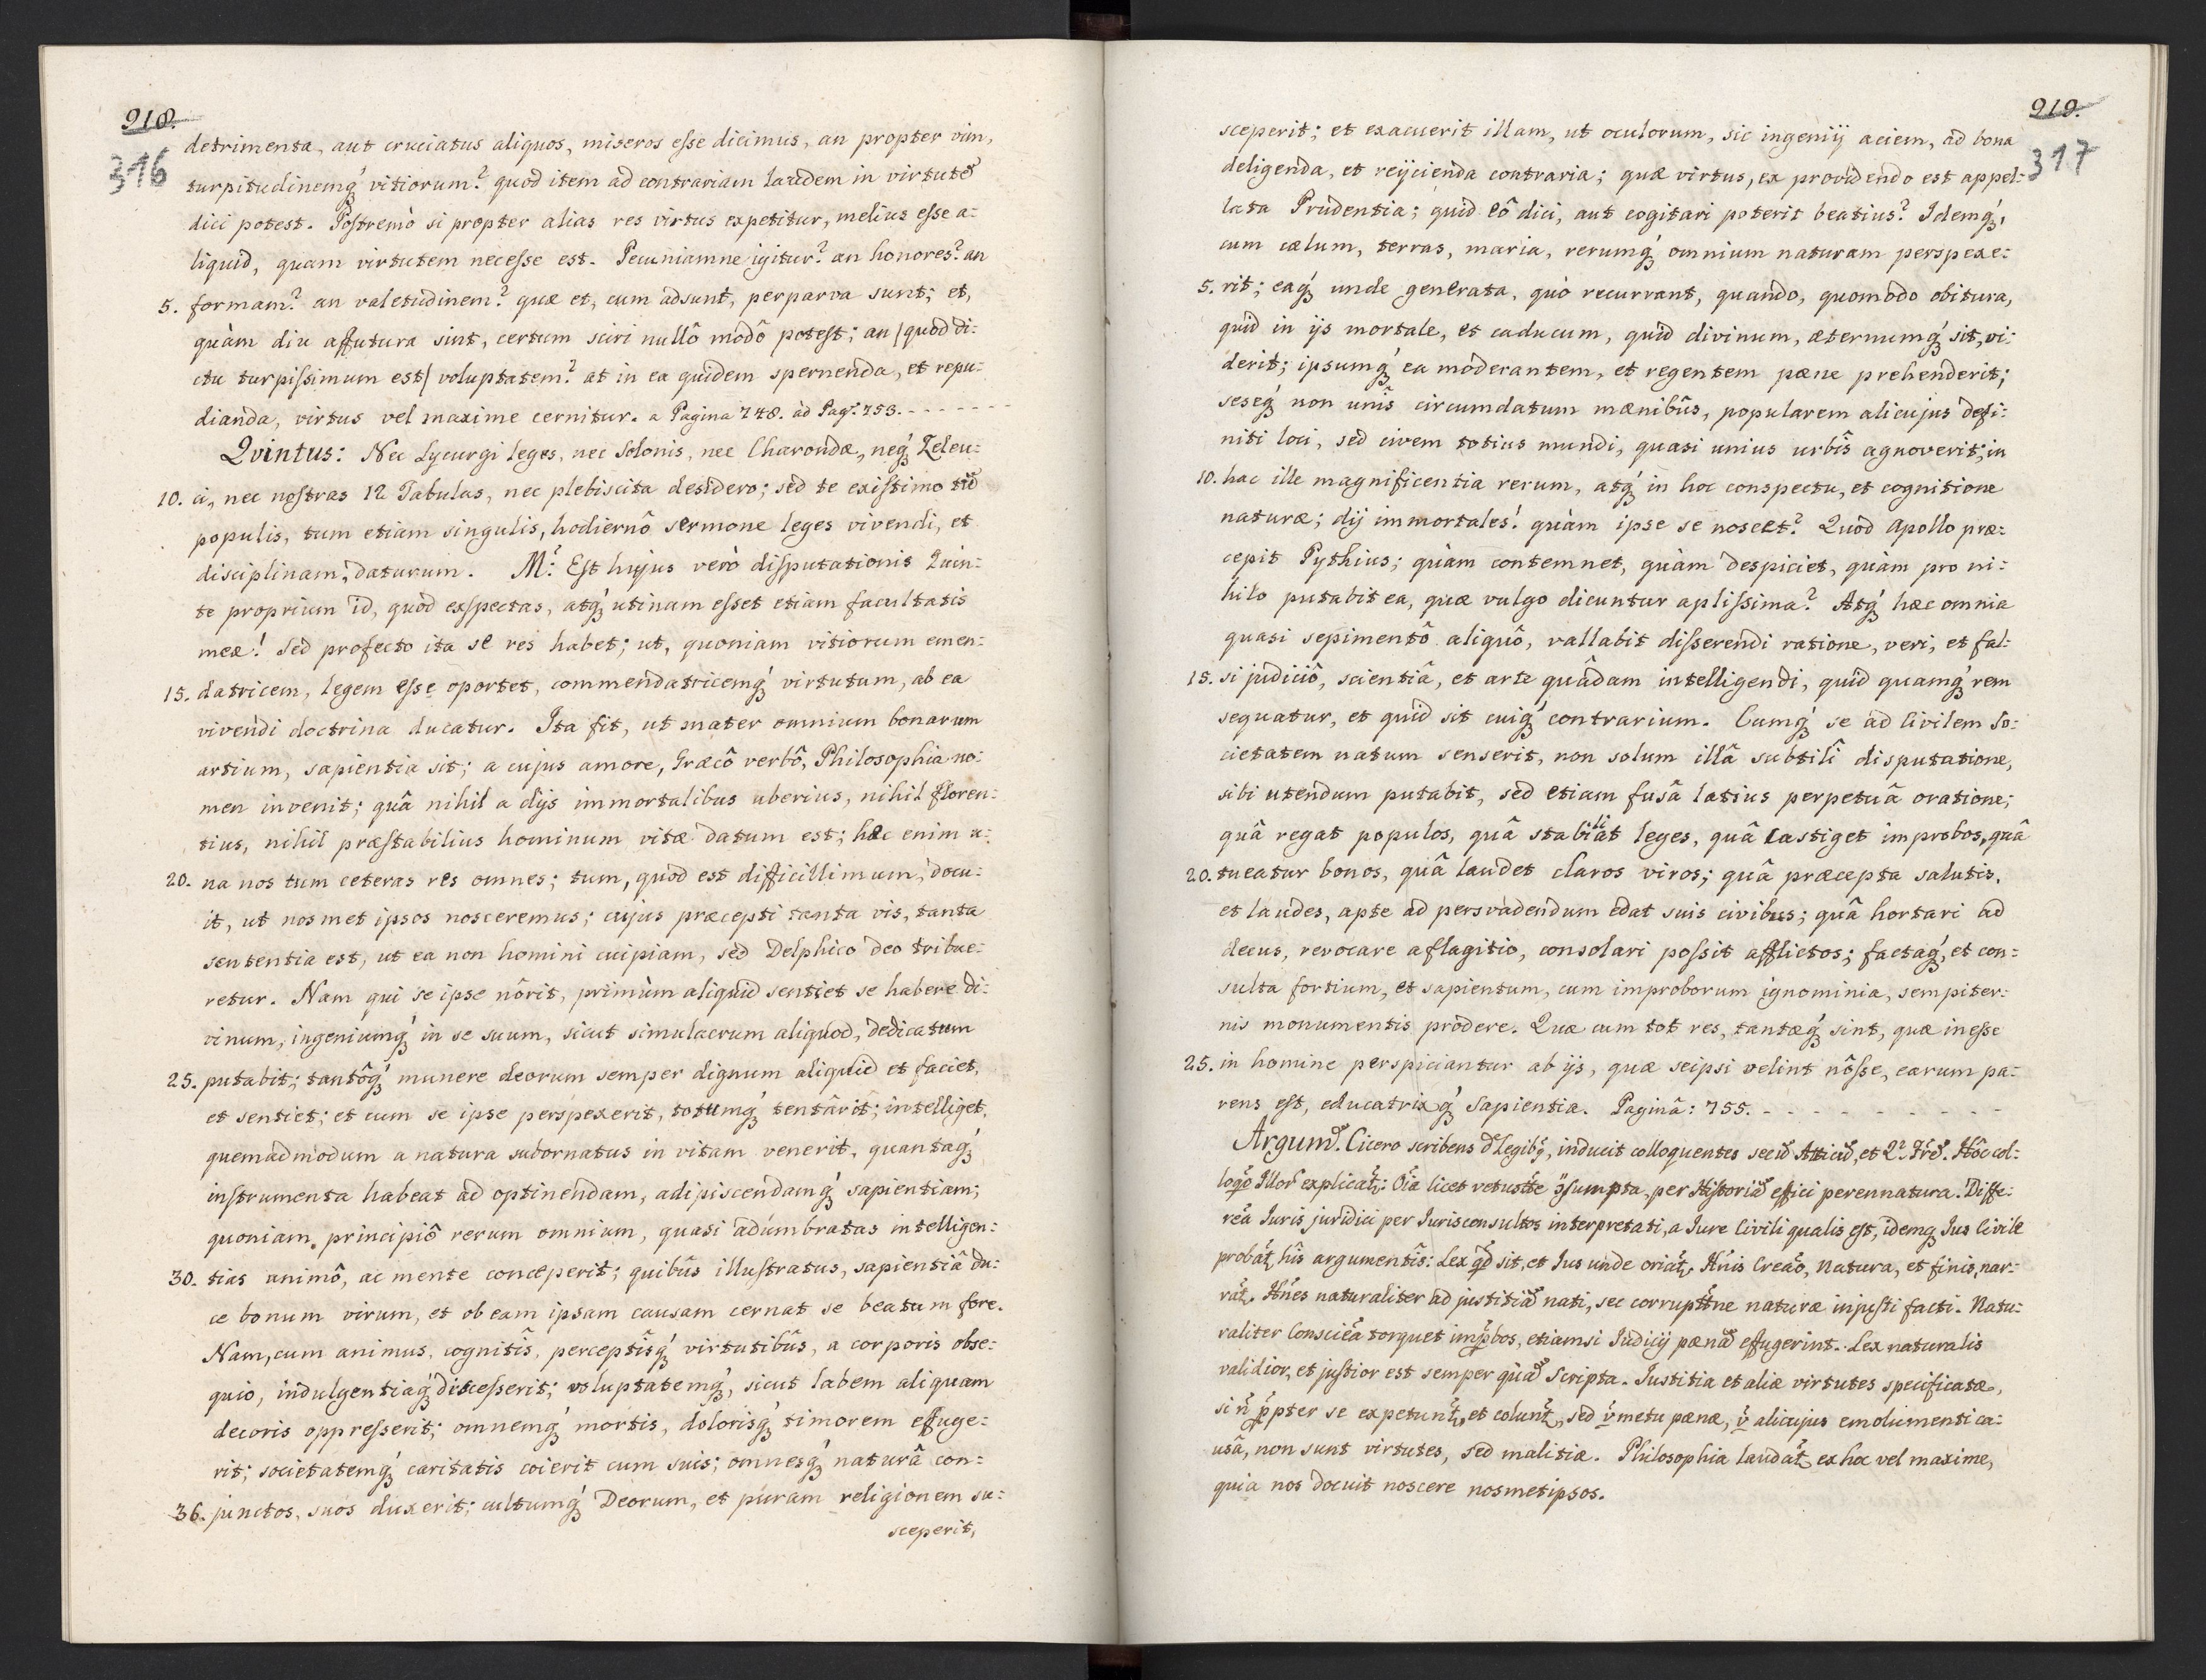 918.
316
detrimenta, aut cruciatus aliquos, miseros esse dicimus, an propter vim,
turpitudinemq́ vitiorum? quod item ad contrariam laudem in virtutẽ
dici potest. Postremò si propter alias res virtus expetitur, melius esse a=
liquid, quam virtutem necesse est. Pecuniamne igitur? an honores? an
5. formam? an valetudinem? quæ et, cum adsunt, perparva sunt; et,
quàm diu affutura sint, certum sciri nullô modô potest; an /quod di=
ctu turpissimum est/ voluptatem? at in ea quidem spernenda, et repu=
dianda, virtus vel maxime cernitur. a Pagina 748. ad Pag: 753. - - - - - - -
Qvintus: Nec Lycurgi leges, nec Solonis, nec Charondæ, neq́ Zeleu=
10. ci, nec nostras 12 Tabulas, nec plebiscita desidero; sed te existimo tũ
populis, tum etiam singulis, hodiernô sermone leges vivendi, et
disciplinam, daturum. M: Est hujus verò disputationis Quin=
te proprium id, quod exspectas, atq́ utinam esset etiam facultatis
meæ! Sed profecto ita se res habet; ut, quoniam vitiorum emen=
15. datricem, legem esse oportet, commendatricemq́ virtutum, ab ea
vivendi doctrina ducatur. Ita fit, ut mater omnium bonarum
artium, sapientia sit; a cujus amore, Græcô verbô, Philosophia no=
men invenit; quâ nihil a dijs immortalibus uberius, nihil floren=
tius, nihil præstabilius hominum vitæ datum est; hæc enim u=
20. na nos tum ceteras res omnes; tum, quod est difficillimum, docu=
it, ut nosmet ipsos nosceremus; cujus præcepti tanta vis, tanta
sententia est, ut ea non homini cuipiam, sed Delphico deo tribue=
retur. Nam qui se ipse nôrit, primùm aliquid sentiet se habere di=
vinum, ingeniumq́ in se suum, sicut simulacrum aliquod, dedicatum
25. putabit; tantôq́ munere deorum semper dignum aliquid et faciet,
et sentiet; et cum se ipse perspexerit, totumq́ tentârit; intelliget,
quemadmodum a natura subornatus in vitam venerit, quantaq́
instrumenta habeat ad optinendam, adipiscendamq́ sapientiam;
quoniam principiô rerum omnium, quasi adumbratas intelligen=
30. tias animô, ac mente conceperit; quibûs illustratus, sapientiâ du=
ce bonum virum, et ob eam ipsam causam cernat se beatum fore.
Nam, cum animus, cognitîs, perceptîsq́ virtutibûs, a corporis obse=
quio, indulgentiaq́ discesserit; voluptatemq́, sicut labem aliquam
decoris oppresserit; omnemq́ mortis, dolorisq́ timorem effuge=
rit; societatemq́ caritatis coierit cum suis; omnesq́ naturâ con=
36. junctos, suos duxerit; cultumq́ Deorum, et puram religionem su=
sceperit,
919.
317
sceperit; et exacuerit illam, ut oculorum, sic ingenij aciem, ad bona
deligenda, et reijcienda contraria; quæ virtus, ex providendo est appel=
lata Prudentia; quid eô dici, aut cogitari poterit beatius? Idemq́,
cum cælum, terras, maria, rerumq́ omnium naturam perspexe=
5. rit; eaq́ unde generata, quò recurrant, quando, quomodo obitura,
quid in ijs mortale, et caducum, quid divinum, æternumq́ sit, vi=
derit; ipsumq́ ea moderantem, et regentem pæne prehenderit;
seseq́ non unîs circumdatum mænibûs, popularem alicujus defi=
niti loci, sed civem totius mundi, quasi unius urbîs agnoverit; in
10. hac ille magnificentia rerum, atq́ in hoc conspectu, et cognitione
naturæ; dij immortales! quàm ipse se noscet? Quòd Apollo præ=
cepit Pythius; quàm contemnet, quàm despiciet, quàm pro ni=
hilo putabit ea, quæ vulgo dicuntur aplissima? Atq́ hæc omnia
quasi sepimentô aliquô, vallabit disserendi ratione, veri, et fal=
15. si judiciô, scientiâ, et arte quâdam intelligendi, quid quamq́ rem
sequatur, et quid sit cuiq́ contrarium. Cumq́ se ad Civilem So=
cietatem natum senserit, non solum illâ subtilî disputatione,
sibi utendum putabit, sed etiam fusâ latius perpetuâ oratione;
quâ regat populos, quâ stabiliat leges, quâ castiget improbos, quâ
20. tueatur bonos, quâ laudet claros viros; quâ præcepta salutis,
et laudes, apte ad persvadendum edat suis civibus; quâ hortari ad
decus, revocare a flagitio, consolari possit afflictos; factaq́, et con=
sulta fortium, et sapientum, cum improborum ignominia, sempiter=
nis monumentis prodere. Quæ cum tot res, tantæq́ sint, quæ inesse
25. in homine perspiciantur ab ijs, quæ seipsi velint nôsse, earum pa=
rens est, educatrixq́ Sapientia. Paginâ: 755. - - - - - - - - -
Argum̃. Cicero scribens d Legib9, inducit colloquentes secũ Atticũ, et Q. Frẽ. Hôc col=
explicat̃: Oĩa licet vetuste per Historiã effici perennatura. Diffe=
rẽa Iuris juridici per Iurisconsultos interpretati, a Iure Civili qualis est, idemq Ius Civile
probat̃ hîs argumentîs: Lex qd sit, et Ius unde oriat̃. Hñis Creaõ, Natura, et finis, nar=
rat̃. Hñes naturaliter ad justitiã nati, sec corrupt̃ne naturæ injusti facti. Natu=
raliter Consciẽa torquet imp̃bos, etiamsi Iudicij pænã effugerint. Lex naturalis
validior, et justior est semper quã Scripta. Iustitia et aliæ virtutes specificatæ,
si ñ p̃pter se expetunt̃, et colunt̃, sed v̆ metu pænæ, v̆ alicujus emolumenti ca=
usâ, non sunt virtutes, sed malitiæ. Philosophia laudat̃ ex hoc vel maxime,
quia nos docuit noscere nosmetipsos.